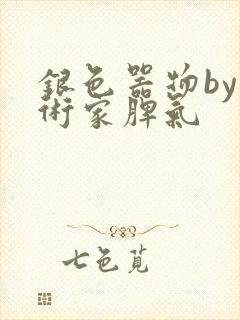 銀色器物by
術家脾氣
七色芃